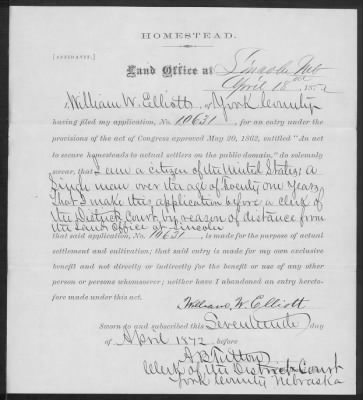 HOMESTEAD.
[AFFIDAVIT.]
Land Office at Lincoln Neb
April 18th 1872
I, William W. Elliott, of York County
having filed my application, No. 10631, for an entry under
the provisions of the act of Congress approved May 20, 1862, entitled "An
act to secure homesteads to actual settlers on the public domain," do solemnly
swear, that I am a citizen of the United States; a
Single man over the age of twenty one Years,
that I make this application before a clerk of
the District Court, by reason of distance from
the Land Office at Lincoln
that said application, No. 10631, is made for the purpose of actual
settlement and cultivation; that said entry is made for my own exclusive
benefit and not directly or indirectly for the benefit or use of any other
person or persons whomsoever; neither have I abandoned an entry hereto-
fore made under this act.
William. W. Elliott
Sworn to and subscribed this Seventeenth day
of April 1872, before
Clerk of the District Court
York County Nebraska